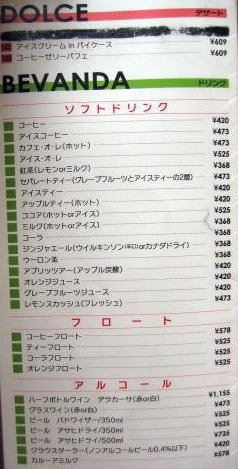 DOLCE デザート
アイスクリーム in パイケース ¥609
コーヒーゼリーパフェ ¥609
BEVANDA ドリンク
ソフトドリンク
コーヒー ¥420
アイスコーヒー ¥473
カフェ・オ・レ(ホット) ¥473
アイス・オ・レ ¥525
紅茶(レモンorミルク) ¥368
セパレートティー(グレープフルーツとアイスティーの2層) ¥473
アイスティー ¥420
アップルティー(ホット) ¥420
ココア(ホットorアイス) ¥525
ミルク(ホットorアイス) ¥368
コーラ ¥368
ジンジャエール(ウイルキンソン(辛口)orカナダドライ) ¥368
ウーロン茶 ¥368
アプリッツァー(アップル炭酸) ¥420
オレンジジュース ¥420
グレープフルーツジュース ¥420
レモンスカッシュ(フレッシュ) ¥473
フロート
コーヒーフロート ¥578
ティーフロート ¥525
コーラフロート ¥525
オレンジフロート ¥525
アルコール
ハーフボトルワイン デラカーサ(赤or白) ¥1,155
グラスワイン(赤or白) ¥473
ビール バドワイザー/350ml ¥525
ビール アサヒドライ/350ml ¥525
ビール アサヒドライ/500ml ¥735
クラウスターラー(ノンアルコールビール0.4%以下) ¥420
カルーアミルク ¥578